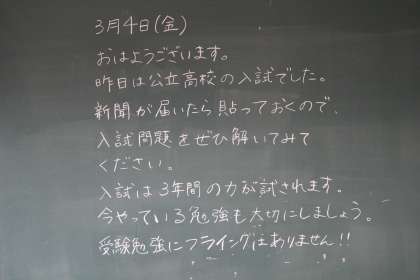 3月4日(金)
おはようございます。
昨日は公立高校の入試でした。
新聞が届いたら貼っておくので、
入試問題をぜひ解いてみて
ください。
入試は3年間の力が試されます。
今やっている勉強も大切にしましょう。
受験勉強にフライングはありません!!